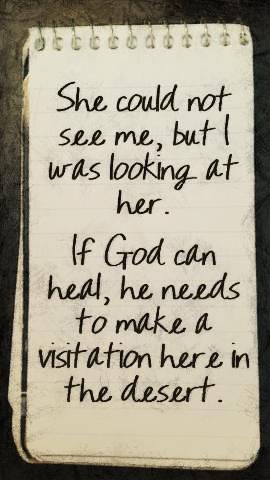 She could not
see me, but I
was looking at
her.
If God can
heal, he needs
to make a
visitation here in
the desert.